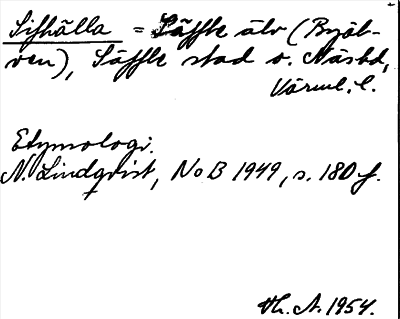 Sifhälla = Säffle älv (Byälv-
ven), Säffle stad o. Näsbd,
Värml. l.
Etymologi.
N. Lindqvist, NoB 1949, s. 180 f.
Th. A. 1954.